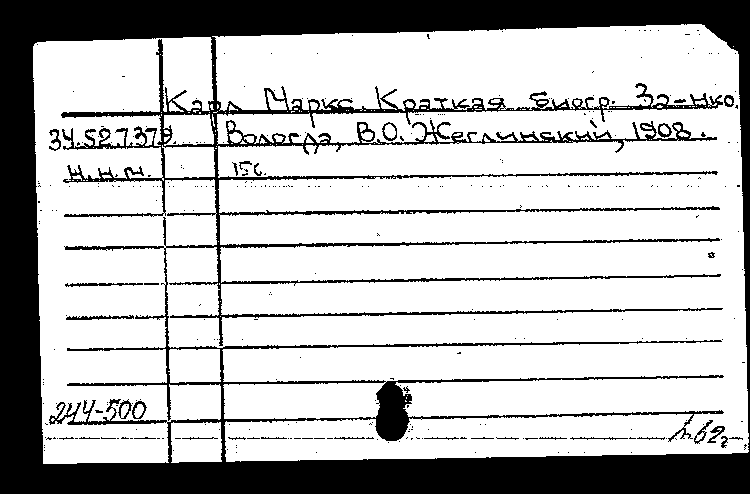 Карл Маркс. Краткая биогр. Зэ-нко.
34.52737э. Вологда, В.О. Жеглинский, 1908.
н.н.м. 15с.
244-500
62г